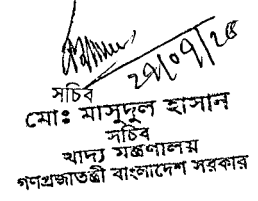 সচিব
মোঃ মাসুদুল হাসান
সচিব
খাদ্য মন্ত্রণালয়
গণপ্রজাতন্ত্রী বাংলাদেশ সরকার